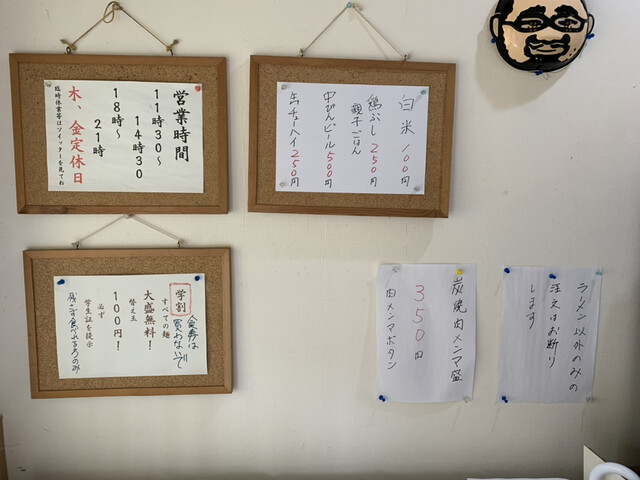 営業時間
11時30~
14時30
18時~
21時
木、金定休日
臨時休業等はツイッターを見てね
白米 100円
鶏ぶし 250円
親子ごはん
中びんビール 500円
缶チューハイ 250円
学割
食券は
買わないで
すべての麺
大盛無料!
替え玉
100円!
必ず
学生証を提示
残さず食べれる方のみ
炭焼肉メンマ盛
350円
肉メンマボタン
ラーメン以外のみの
注文はお断り
します